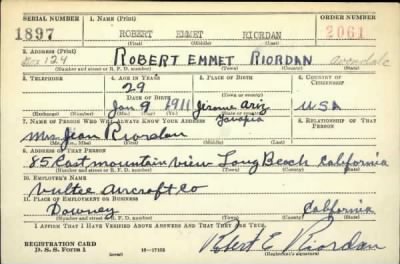 SERIAL NUMBER 1. NAME (Print) ORDER NUMBER
1897 ROBERT EMMET RIORDAN 2061
(First) (Middle) (Last)
2. ADDRESS (Print)
Box 124 ROBERT EMMET RIORDAN Avondale
(Number and street or R. F. D. number) (Town) (County) (State)
3. TELEPHONE 4. AGE IN YEARS 5. PLACE OF BIRTH 6. COUNTRY OF CITIZENSHIP
29
DATE OF BIRTH
Jan 9 1911 Jerome Ariz USA
(Exchange) (Number) (Mo.) (Day) (Yr.) (State or country)
7. NAME OF PERSON WHO WILL ALWAYS KNOW YOUR ADDRESS 8. RELATIONSHIP OF THAT PERSON
Mrs Jean Riordan
(Mr., Mrs., Miss) (First) (Middle) (Last)
9. ADDRESS OF THAT PERSON
85 East mountain view Long Beach California
(Number and street or R. F. D. number) (Town) (County) (State)
10. EMPLOYER'S NAME
Vultee Aircraft Co
11. PLACE OF EMPLOYMENT OR BUSINESS
Downey California
(Number and street or R. F. D. number) (Town) (County) (State)
I AFFIRM THAT I HAVE VERIFIED ABOVE ANSWERS AND THAT THEY ARE TRUE.
REGISTRATION CARD
D. S. S. Form 1 (over) 16—17105 Robert E Riordan
(Registrant's signature)